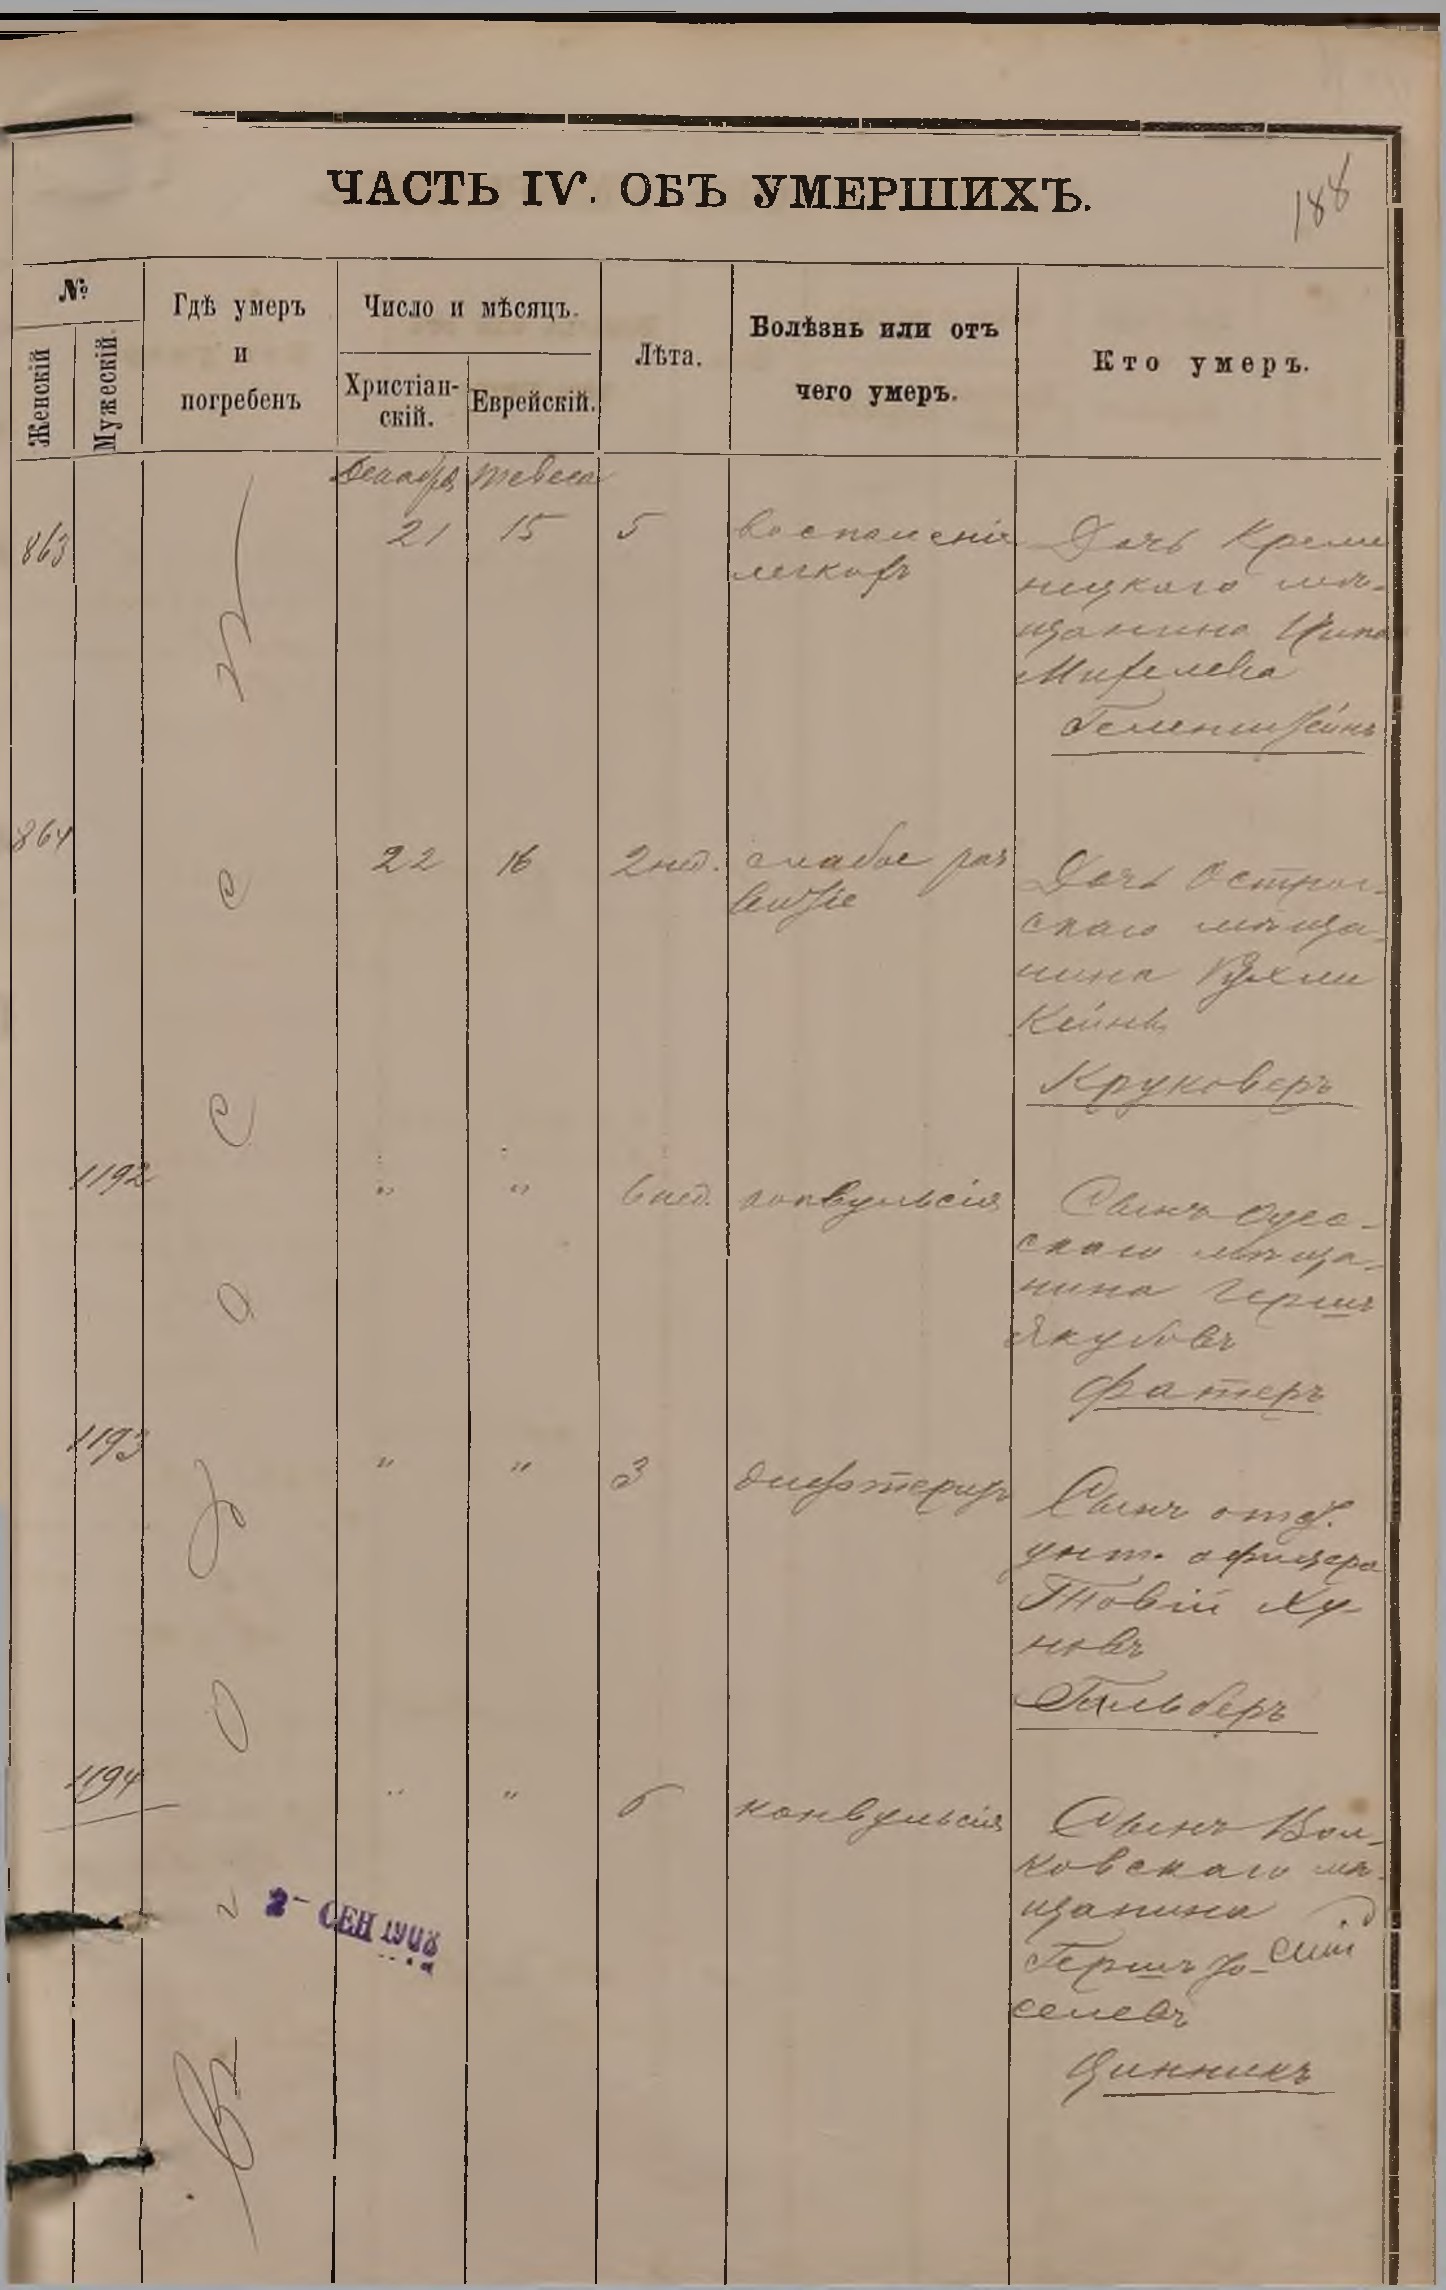 ЧАСТЬ IV. ОБЪ УМЕРШИХЪ.
188
№
Женскій
Мужескій.
Гдѣ умеръ
и
погребенъ
Число и мѣсяцъ.
Христіан-
скій.
Еврейскій.
Лѣта.
Болѣзнь или отъ
чего умеръ.
Кто умеръ.
Декабря тевеса
863 21 15 5
воспаленіе
легкихъ
Дочь Креме
ницкаго мѣ-
щанина Ципа
Михелева
864 22 16 2 нед.
слабое раз
витіе
Дочь Острог-
скаго мѣща-
нина Рухля
Круковеръ
1192 " " 6 нед. конвульсія
Сынъ Одес-
скаго мѣща-
нина Гершъ
Якубовъ
Фатеръ
1193 " " 3 дифтеритъ
Сынъ отст.
унт. офицера
Товій Ху-
новъ
Гильберъ
1194 " " конвульсія
Сынъ Вол-
ковскаго мѣ-
щанина
Гершъ Іо-
селевъ
Цинникъ
Въ г. Одессѣ
2- СЕН 1908